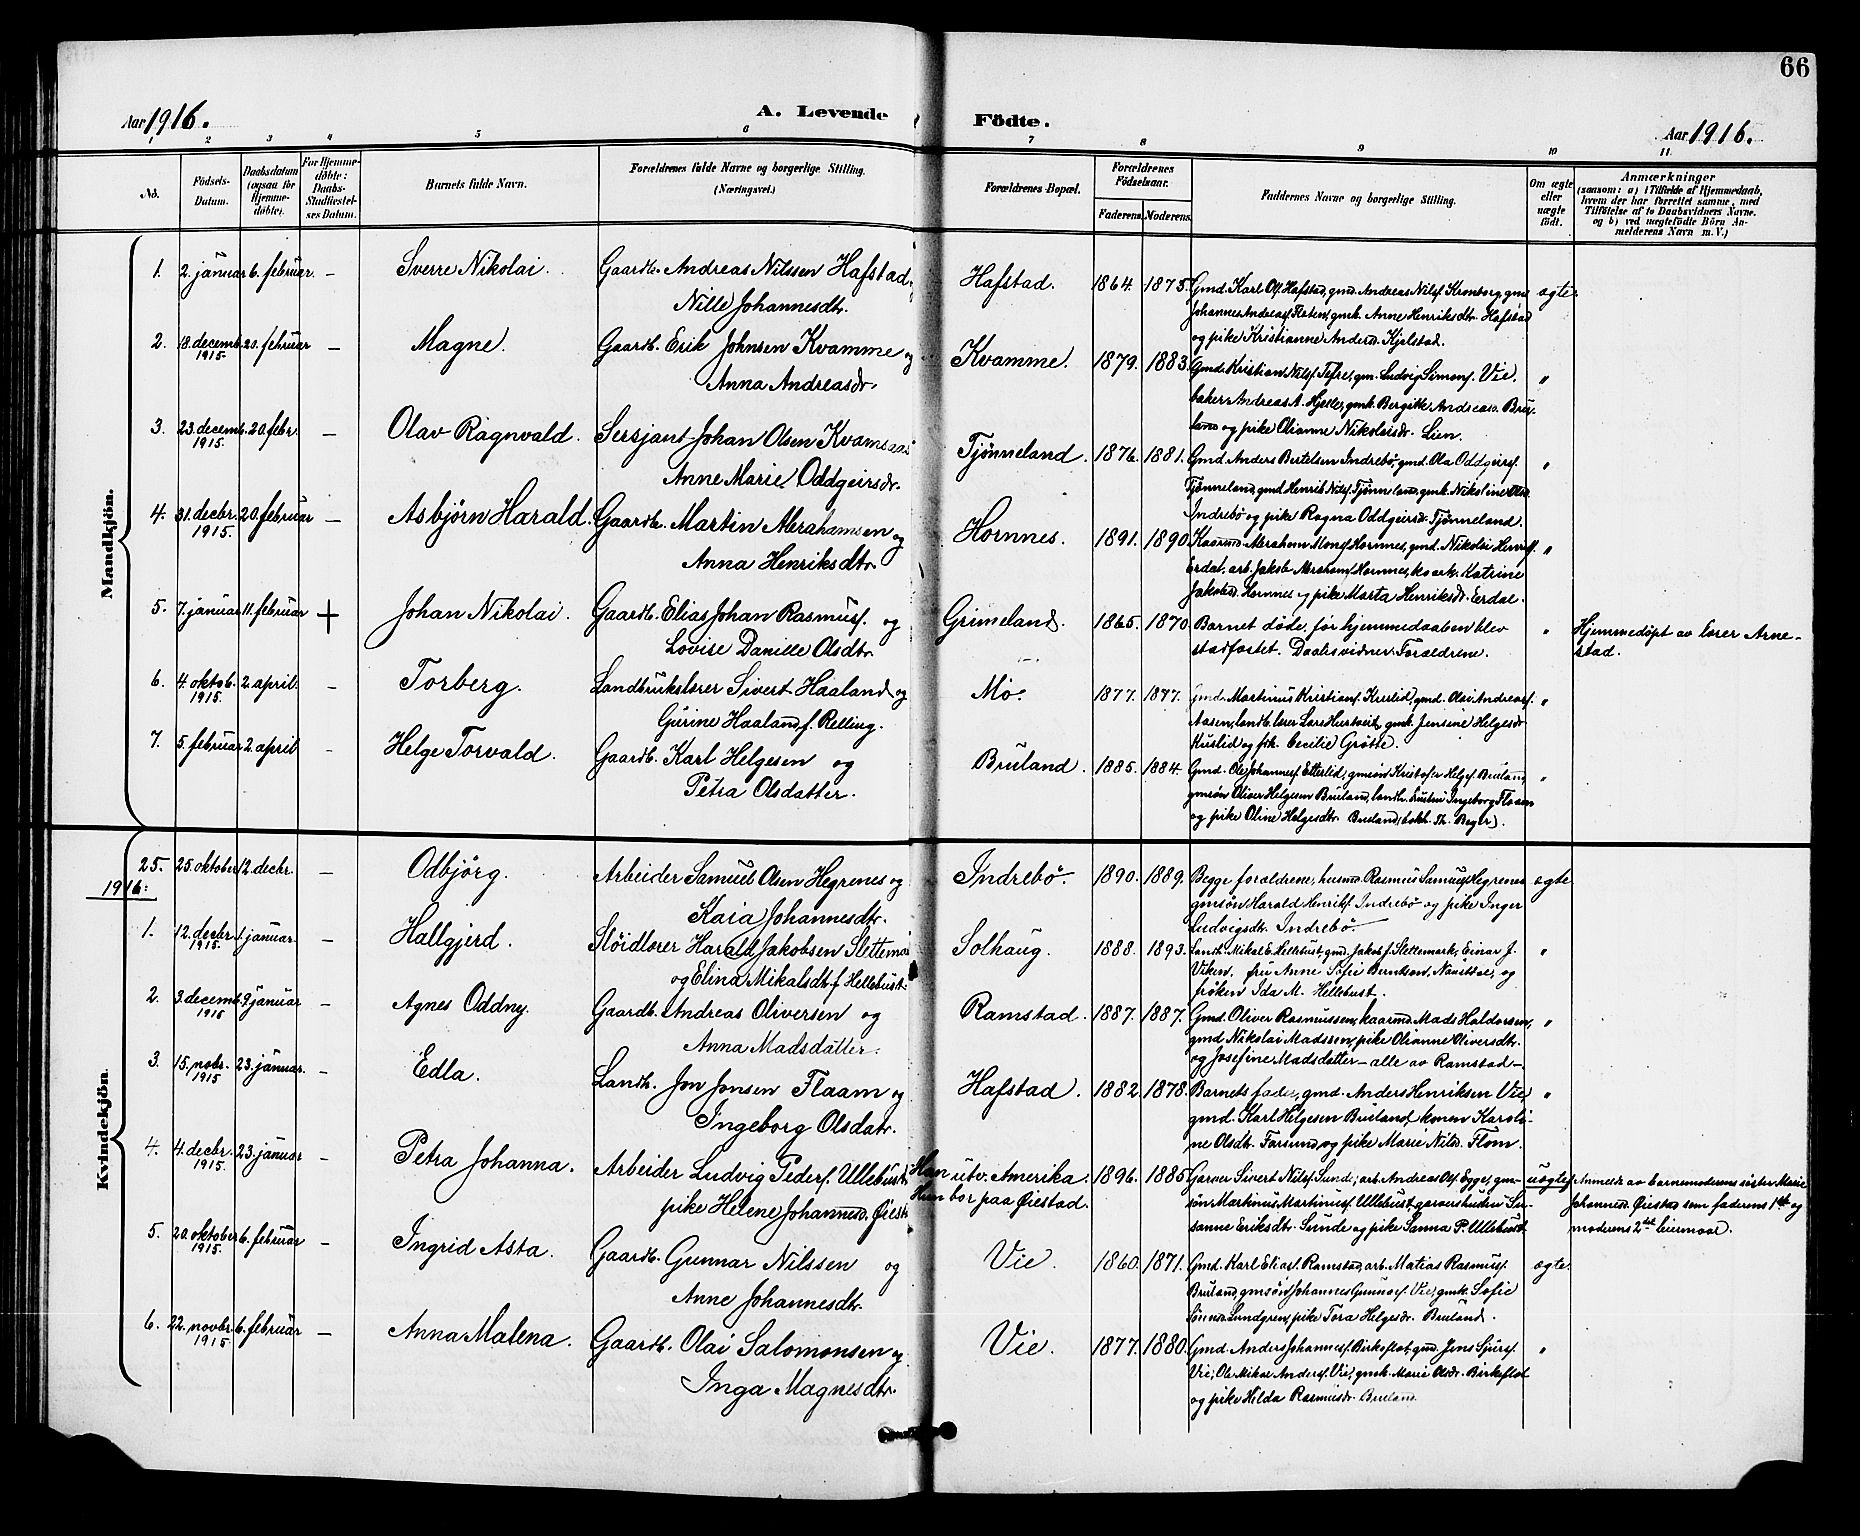 66
Aar 1916.
A. Levende
Födte.
Aar 1916.
1 2 3 4 5 6 7 8 9 10 11
No.
Födsels-
Datum.
Daabsdatum
(ogsaa för
Hjemme-
döbte).
For Hjemme-
döbte:
Daabs-
Stadfæstel-
ses Datum.
Barnets fulde Navn.
Forældrenes fulde Navne og borgerlige Stilling.
(Næringsvei.)
Forældrenes Bopæl.
Forældrenes
Födselsaar.
Faderens. Moderens.
Faddernes Navne og borgerlige Stilling.
Om ægte
eller
uægte
födt.
Anmærkninger
(saasom: a) i Tilfælde af Hjemmedaab,
hvem der har forrettet samme, med
Tilföielse af to Daabsvidners Navne.
og b) ved uægtefödte Börn An-
melderens Navn m. V.)
Mandkjön.
1. 2. januar 6. februar. – Sverre Nikolai. Gaardb. Andreas Nilssen Hafstad
Nille Johannesdtr.
Hafstad. 1864. 1875. Gmd. Karl Ol. Hafstad, gmd. Andreas Nilsf. Kronborg, gmd
Johannes Andreasf. Flaten, gmk. Anne Henriksdtr. Hafstad
og pike Kristianne Andersd. Kjelstad.
ægte.
2. 18. decemb. 20. februar –
1915.
Magne. Gaardb. Erik Johnsen Kvamme og
Anna Andreasdr.
Kvamme. 1879. 1883. Gmd. Kristian Nilsf. Tefre, gm. Ludvig Simonf. Vie.
baker Andreas A. Hjelle, gmk. Bergitte Andreasd. Bru-
land og pike Olianne Nikolaisdr. Lien.
"
3. 23. decemb. 20. febr. –
1915.
Olav Ragnvald. Sersjant Johan Olsen Kvamsaas
Anne Marie Oddgeirsdr.
Tjønneland. 1876. 1881. Gmd. Anders Bertelsen Indrebø, gmd. Ola Oddgeirsf.
Tjønneland, gmd Henrik Nilsf. Tjønneland, gmk. Nikoline Olsd.
Indrebø og pike Ragna Oddgeirsd. Tjønneland.
"
4. 31. decbr. 20. februar –
1915.
Asbjørn Harald. Gaardb. Martin Abrahamsen og
Anna Henriksdtr.
Hornnes. 1891. 1890. Kaarmd. Abraham Monsf. Hornnes, gmd. Nikolai Henriksf.
Erdal, arb. Jakob Abrahamf. Hornnes, ks ark. Katrine
Jakobsd. Hornnes og pike Marta Henriksdr. Erdal.
"
5. 7. januar 11. februar + Johan Nikolai. Gaardb. Elias Johan Rasmusf. og
Lovise Danille Olsdtr.
Grimeland. 1865. 1870. Barnet døde, før hjemmedaaben blev
stadfæstet. Daabsvidner: Forældrene.
" Hjemmedøpt av lærer Arne-
stad.
6. 4. oktob. 2. april. –
1915.
Torberg. Landbrukslærer Sivert Haaland og
Gurine Haaland f. Relling.
Mo. 1877. 1877. Gmd. Martinus Kristiansf. Kuslid, gmd. Olai Andreasf.
Aasen, landb. lærer Lars Hertveit, gmk. Jensene Helgesdr
Kuslid og frk. Cecilie Grøtte.
"
7. 5. februar 2. april – Helge Torvald. Gaardb. Karl Helgesen og
Petra Olsdatter.
Bruland. 1885. 1884. Gmd. Ole Johannesf. Etterlid, gmsøn Kristofer Helgesf. Bruland,
gmsøn Oliver Helgesen Bruland, landh. frøken Ingeborg Flaam
og pike Oline Helgesdtr. Bruland
"
Kvindekjön.
25. 25. oktober 12. decbr. – Odbjørg. Arbeider Samuel Olsen Hegrenes og
Kaia Johannesdtr.
Indrebø. 1890. 1889. Begge forældrene, husmd. Rasmus Samuelsf. Hegrenes
gmsøn Harald Henriksf. Indrebø og pike Inger
Ludvigsdtr. Indrebø.
ægte
1916:
1. 12. decbr. 1. januar. –
1915.
Hallgjerd. Sløidlærer Harald Jakobsen Slettemark
og Elina Mikalsdtr. f. Hellebust.
Solhaug. 1888. 1893. Landh. Mikal E. Hellebust, gmd. Jakob J. Slettemark, Einar J.
Viken, fru Anne Sofie Berntsen, og
frøken Ida M. Hellebust.
"
2. 3. decemb. 9. januar –
1915
Agnes Oddny. Gaardb. Andreas Oliversen og
Anna Madsdatter.
Ramstad. 1887. 1887. Gmd. Oliver Rasmussen, kaarmd. Mads Haldorsen,
gmd Nikolai Madssen, pike Olianne Oliversdtr.
og Josefine Madsdatter – alle av Ramstad –
"
3. 15. novbr. 23. januar. –
1915
Edla. Landh. Jon Jonsen Flaam og
Ingeborg Olsdatr.
Hafstad. 1882. 1878. Barnets fader, gmd. Anders Henriksen Vie
gmd. Karl Helgesen Bruland, konen Karoli-
ne Olsdtr. Farsund og pike Marie Nilsd. Flom.
"
4. 4. decbr. 23. januar –
1915.
Petra Johanna. Arbeider Ludvig Pedersf. Ullebust
pike Helene Johannesd. Øiestad
Han utv. Amerika.
Hun bor paa Øiestad.
1896. 1885. Garver Sivert Nilsf. Sunde, arb. Andreas Olsf. Egge, gm-
søn Martinus Martinusf. Ullebust, garverhuden Su-
sanne Eriksdtr. Sunde og pike Sanna P. Ullebust.
uægte. Anmeldt av barnemoderens søster Marie
Johannesd. Øiestad som faderens 1ste og
moderens 2det leiermaal.
5. 20. oktober 6. februar –
1915.
Ingrid Asta. Gaardb. Gunnar Nilssen og
Anne Johannesdtr.
Vie. 1860. 1871. Gmd. Karl Eliasf. Ramstad, arb. Matias Rasmusf.
Bruland, gmsøn Johannes Gunnarf. Vie, gmk. Sofie
Lundgren, pike Tora Helgesdr. Bruland.
ægte.
6. 22. novbr. 6. februar –
1915.
Anna Malena. Gaardb. Olai Salomonsen og
Inga Magnesdtr.
Vie. 1877. 1880. Gmd. Anders Johannesf. Birkeflot, gmd. Jens Sjursf.
Vie, Ole Mikal Andersf. Vie, gmk. Marie Olsdr. Birkeflot
og pike Hilda Rasmusdr. Bruland.
"